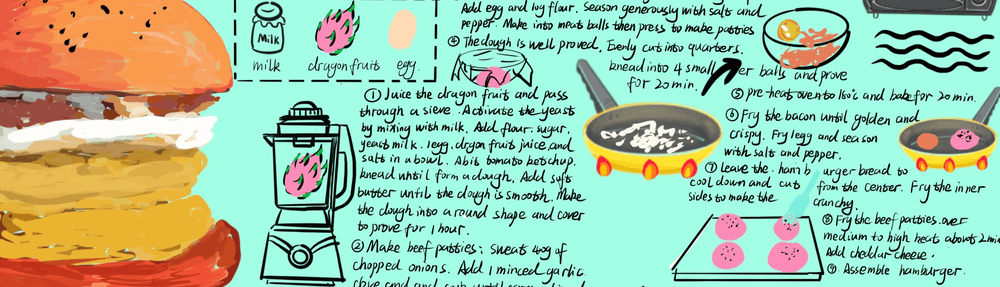 Milk
milk
dragonfruit
egg
① Juice the dragon fruit and pass
through a sieve. Activate the yeast
by mixing with milk. Add flour. sugar.
yeast milk. 1egg. drgon fruit juice and
salt in a bowl. A bit tomato ketchup.
knead until form a dough. Add soft
butter until the dough is smooth. Make
the dough into a round shape and cover
to prove for 1 hour.
② Make beef patties: Sweats 40g of
chopped onions. Add 1 minced garlic
clove and
Add egg and 10g flour. Season generously with salts and
pepper. Make into meat balls then press to make patties
④ The dough is well proved. Evenly cut into quarters.
knead into 4 small er balls and prove
for 20 min.
⑤ pre-heat oven to 150°c and bake for 20 min.
⑥ Fry the bacon until golden and
crispy. Fry 1 egg and season
with salts and pepper.
⑦ Leave the hamb urger bread to
cool down and cut from the center. Fry the inner
sides to make the crunchy.
⑧ Fry the beef patties over
medium to high heat abouts 2min
Add cheddar cheese.
⑨ Assemble hamburger.